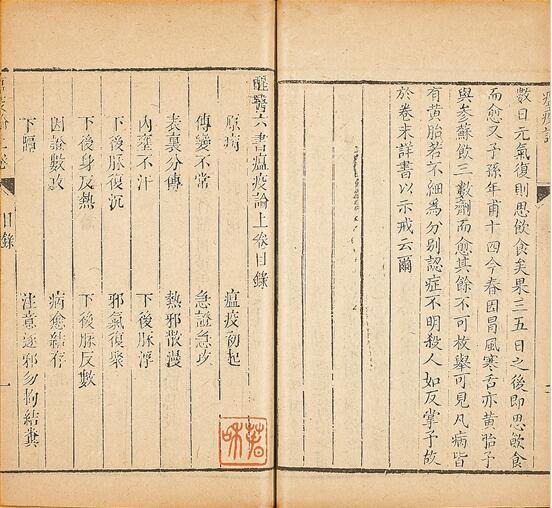 數日元氣復則思飲食矣果三五日之後即思飲食
而愈又予孫年甫十四今春因冒風寒舌亦黃胎予
與參蘇飲三數劑而愈其餘不可枚舉可見凡病皆
有黃胎若不細為分别認症不明殺人如反掌予故
於卷末詳書以示戒云爾
醒醫六書瘟疫論上卷目錄
原病
瘟疫初起
傳變不常
急證急攻
表裏分傳
熱邪散漫
內壅不汗
下後脉浮
下後脉復沉
邪氣復聚
下後身反熱
下後脉反數
因證數攻
病愈結存
下膈
注意逐邪勿拘結糞
目錄
一